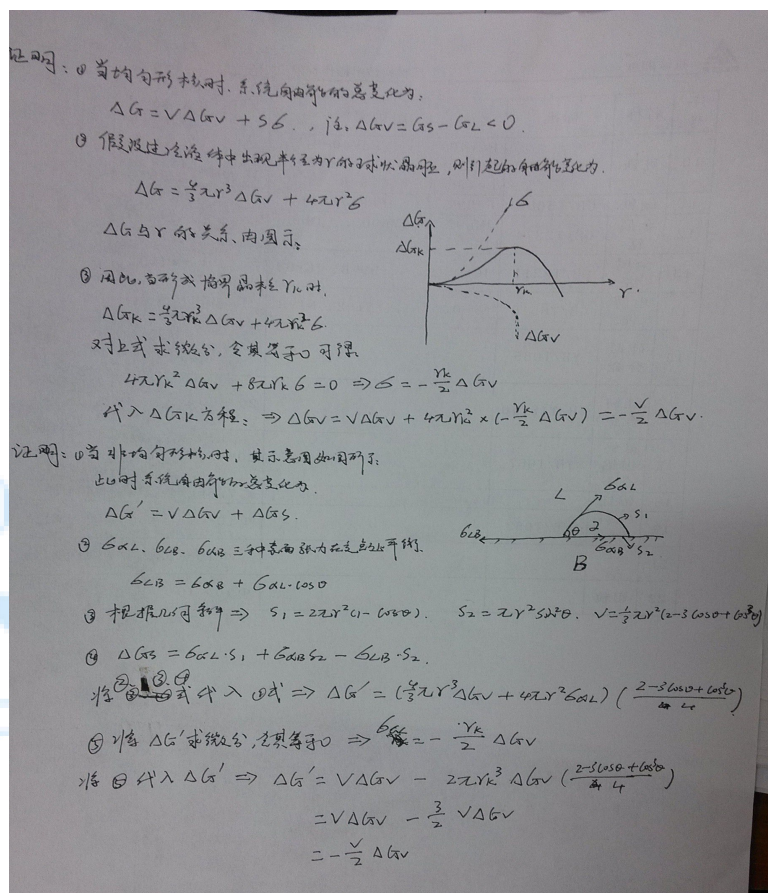 证明：① 当均匀形核时，系统自由能的总变化为：
ΔG = VΔGv + Sσ . , 注, ΔGv = Gs - GL < 0.
② 假定过冷液体中出现半径为r的球状晶胚，则引起的自由能变化为.
ΔG = 4/3 πr³ΔGv + 4πr²σ
ΔG与r的关系，由图示：
ΔG
ΔGk
σ
rk
r
ΔGv
③ 因此，当形成临界晶核rk时，
ΔGk = 4/3 πrk³ΔGv + 4πrk²σ.
对上式求微分，令其等于0可得
4πrk²ΔGv + 8πrkσ = 0 ⇒ σ = - rk/2 ΔGv
代入ΔGk方程：⇒ ΔGv = VΔGv + 4πrk² × (- rk/2 ΔGv) = - V/2 ΔGv.
证明：① 当非均匀形核时，其示意图如图所示：
此时系统自由能的总变化为.
ΔG' = VΔGv + ΔGs.
L
σαL
S1
σLB
θ
α
σαB
S2
B
② σαL、σLB、σαB三种表面张力在交点处平衡.
σLB = σαB + σαL·cosθ
③ 根据几何条件 ⇒ S1 = 2πr²(1 - cosθ). S2 = πr²sin²θ. V = 1/3 πr³(2 - 3cosθ + cos³θ)
④ ΔGs = σαL·S1 + σαB S2 - σLB·S2.
将②③④式代入①式 ⇒ ΔG' = (4/3 πr³ΔGv + 4πr²σαL) ( (2 - 3cosθ + cos³θ)/4 )
⑤ 将ΔG'求微分，令其等于0 ⇒ σ = - rk/2 ΔGv
将⑤代入ΔG' ⇒ ΔG' = VΔGv - 2πrk³ΔGv ( (2 - 3cosθ + cos³θ)/4 )
= VΔGv - 3/2 VΔGv
= - V/2 ΔGv